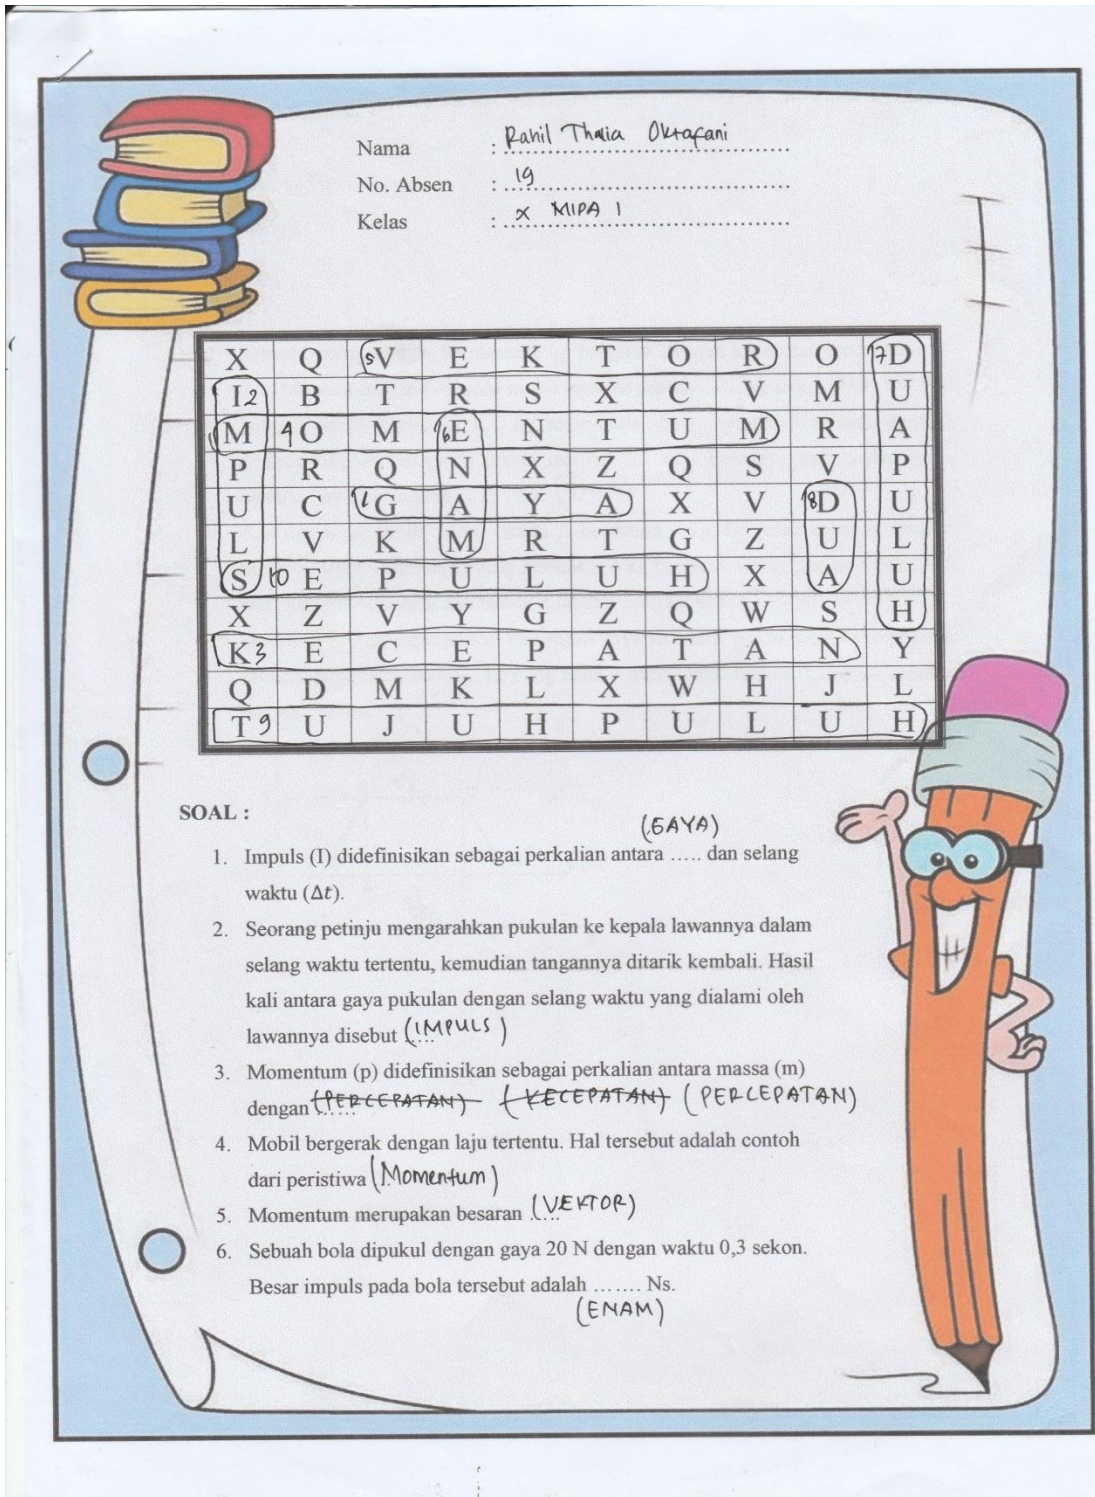 Nama : Rahil Thalia Oktafani
No. Absen : 19
Kelas : X MIPA 1
X Q 5V E K T O R O 7D
I2 B T R S X C V M U
M 4O M 6E N T U M R A
P R Q N X Z Q S V P
U C 1G A Y A X V 8D U
L V K M R T G Z U L
S 10 E P U L U H X A U
X Z V Y G Z Q W S H
K3 E C E P A T A N Y
Q D M K L X W H J L
T9 U J U H P U L U H
SOAL :
(GAYA)
1. Impuls (I) didefinisikan sebagai perkalian antara ..... dan selang
waktu (Δt).
2. Seorang petinju mengarahkan pukulan ke kepala lawannya dalam
selang waktu tertentu, kemudian tangannya ditarik kembali. Hasil
kali antara gaya pukulan dengan selang waktu yang dialami oleh
lawannya disebut (IMPULS)
3. Momentum (p) didefinisikan sebagai perkalian antara massa (m)
dengan (PERCEPATAN) (KECEPATAN) (PERCEPATAN)
4. Mobil bergerak dengan laju tertentu. Hal tersebut adalah contoh
dari peristiwa (Momentum)
5. Momentum merupakan besaran (VEKTOR)
6. Sebuah bola dipukul dengan gaya 20 N dengan waktu 0,3 sekon.
Besar impuls pada bola tersebut adalah ....... Ns.
(ENAM)